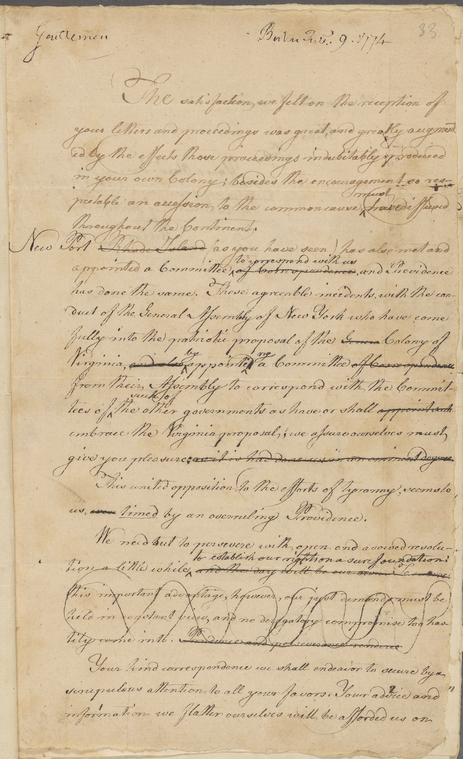 33
Gentlemen Boston Feb. 9. 1774
The satisfaction, we felt on the reception of
your letters and proceedings was great, and greatly augment
ed by the effects those proceedings indubitably produced
in your own Colony; besides the encouragement so res-
must
pectable an accession, to the common cause, have diffused
throughout the Continent.
New Port Rhode Island (as you have seen) has also met and
to correspond with us
appointed a Committee, of Correspondence, and Providence
has done the same. These agreable incidents, with the con-
duct of the General Assembly of New York who have come
fully into the patriotic proposal of the Colony of
by ing
Virginia, and also appoint a Committee of Correspondence
from their Assembly to correspond with the Commit-
such of
tees of the other governments as have or shall
embrace the Virginia proposal; we assure ourselves must
give you pleasure
This united opposition to the efforts of tyranny, seems to
us, timed by an overruling Providence.
We need but to persevere with open and avowed resolu-
to establish our rights on a sure foundation:
tion a little while, and the day will be our own
this important advantage, however, our just demands must be
held in constant view, and no derogatory compromise too has-
tily come into.
Your kind correspondence we shall endeavor to secure by a
scrupulous attention to all your favors. Your advice and
information we flatter ourselves will be afforded us on